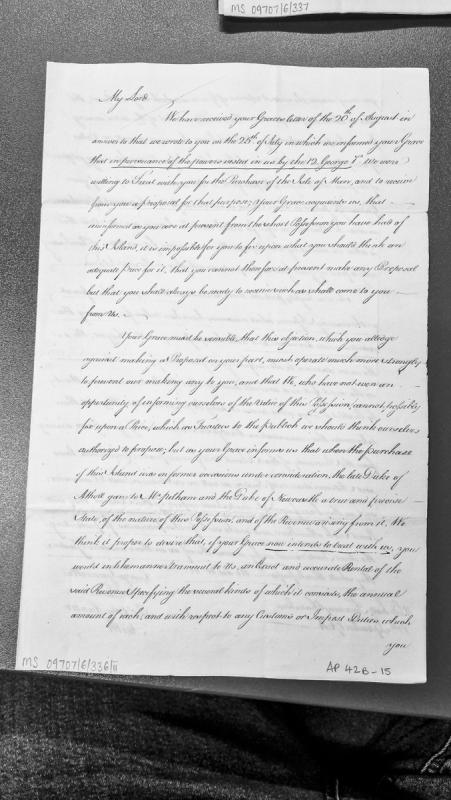 MS 09707/6/337
My Lord
We have received your Graces letter of the 20th of August in
answer to that we wrote to you on the 25th of July in which we informed your Grace
that in pursuance of the powers vested in us by the 12 George 1st We were
willing to Treat with you for the Purchase of the Isle of Man, and to receive
from you a proposal for that purpose; Your Grace acquaints us, that
uninformed as you are at present from the short Possession you have had of
this Island, it is impossible for you to fix upon what you should think an
adequate price for it, that you cannot therefore at present make any Proposal
but that you shall always be ready to receive such as shall come to you
from Us.
Your Grace must be sensible, that this objection, which you alledge
against making a Proposal on your part, must operate much more strongly
to prevent our making any to you, and that We, who have not even an
opportunity of informing ourselves of the Value of this Possession, cannot possibly
fix upon a Price, which in Justice to the Publick we should think ourselves
authorized to propose; but as your Grace informs us that when the purchase
of this Island was on former occasions under consideration, the late Duke of
Atholl gave to Mr Pelham and the Duke of Newcastle a true and precise
State, of the nature of this Possession, and of the Revenue arising from it, We
think it proper to desire that, if your Grace now intends to treat with us, you
would in like manner transmit to Us, an Exact and accurate Rental of the
said Revenue Specifying the several kinds of which it consists, the annual
amount of each, and with respect to any Customs or Impost Duties which
you
MS 09707/6/336/ii
AP 42B-15